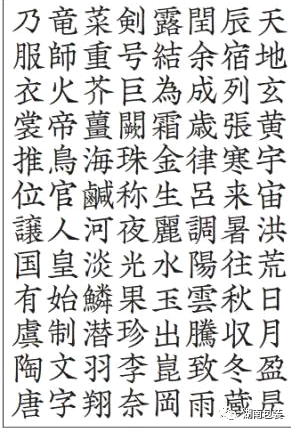 天地玄黄宇宙洪荒日月盈昃
辰宿列張寒来暑往秋収冬蔵
閏余成歳律呂調陽雲騰致雨
露結為霜金生麗水玉出崑岡
剣号巨闕珠称夜光果珍李奈
菜重芥薑海鹹河淡鱗潜羽翔
竜師火帝鳥官人皇始制文字
乃服衣裳推位譲国有虞陶唐
湖南包装